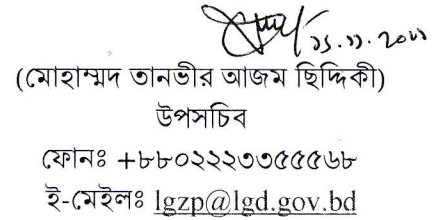 ১১.১১.২০২১
(মোহাম্মদ তানভীর আজম ছিদ্দিকী)
উপসচিব
ফোনঃ +৮৮০২২২৩৩৫৫৫৬৮
ই-মেইলঃ lgzp@lgd.gov.bd